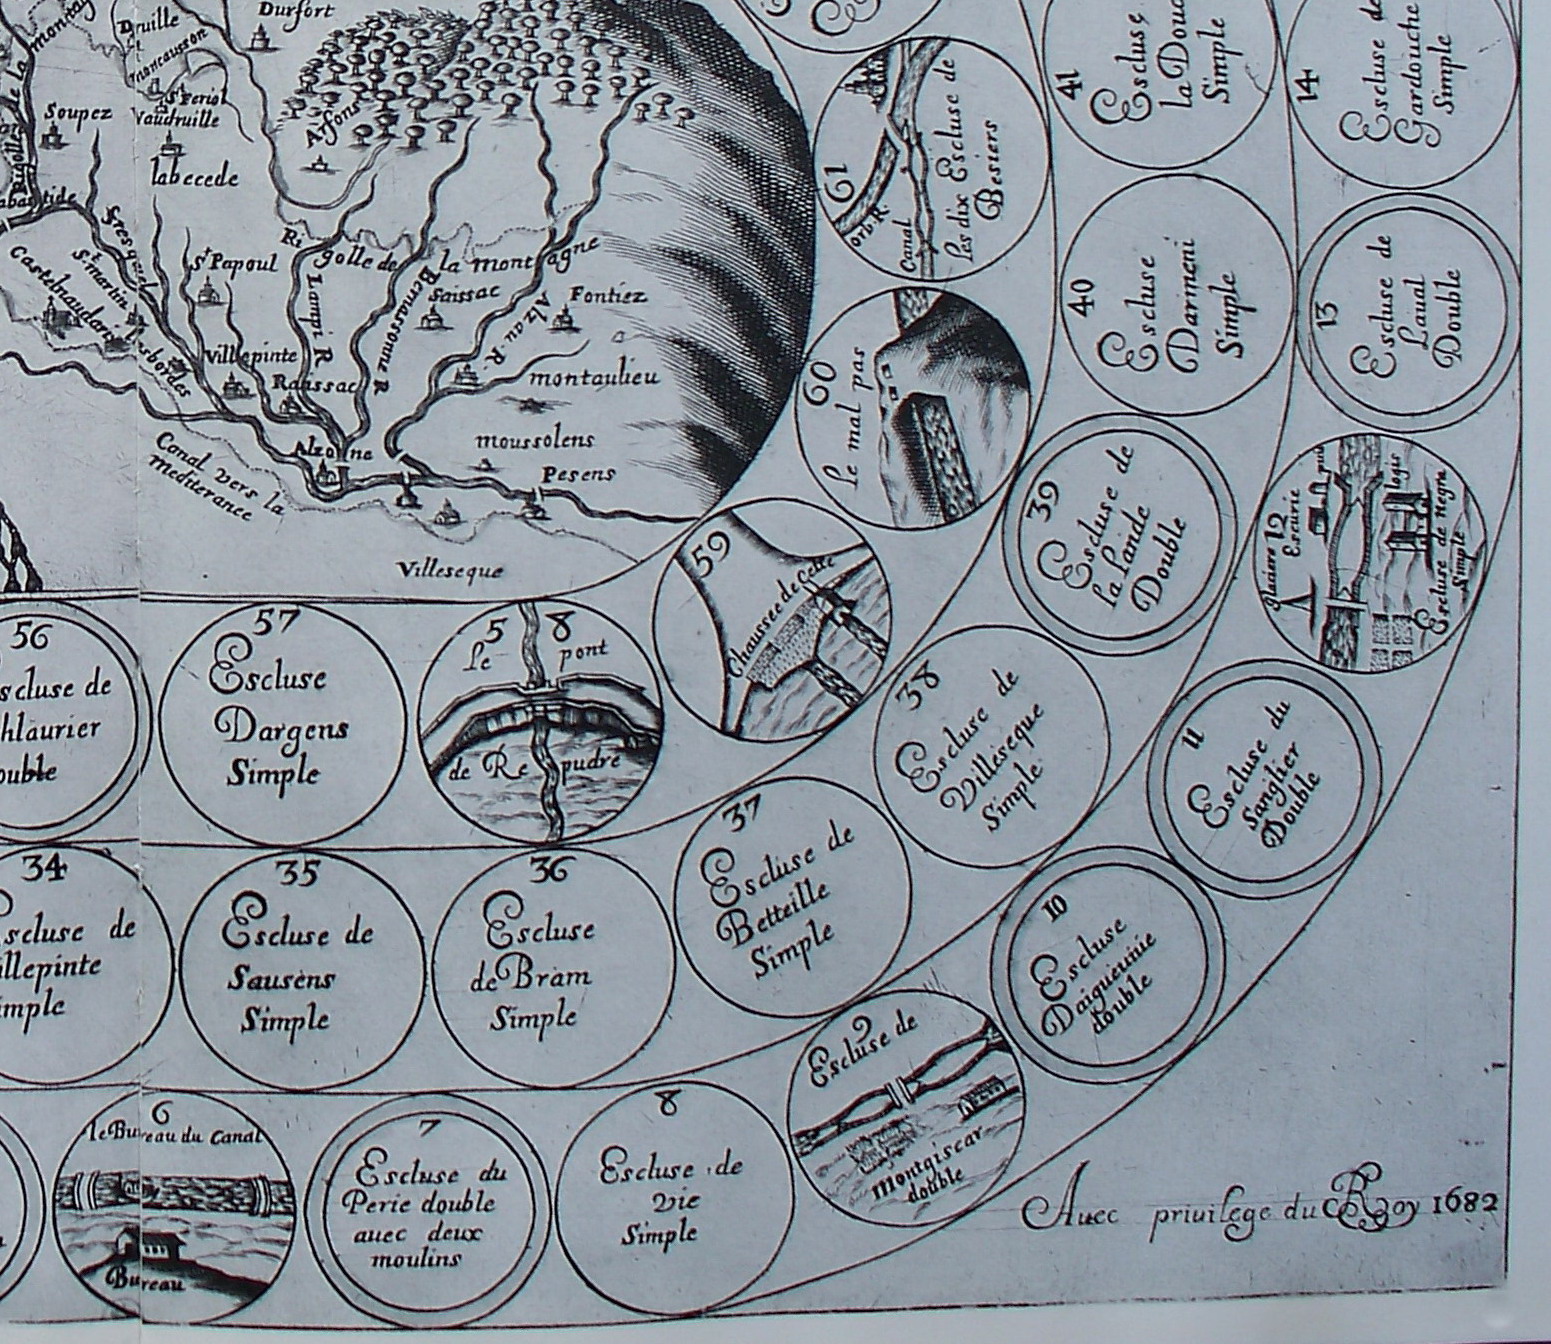 Durfort
Druille
St
Soupez
Vaudruille
St Feriol
labecede
Alfons
St Papoul
Rigolle de la montagne
Castelnaudari
St martin
Fresquel
Lampi R
Bernassonne R
Alzau R.
Saissac
Fontiez
Villepinte
Raissac
montaulieu
moussolens
Alzonne
Pesens
Canal vers la
Mediteranee
Villeseque
61
orb R.
Canal
les dix Escluse de
Besiers
60
le mal pas
59
Chaussee de Cette
58
le pont
de Repudre
57
Escluse
Dargens
Simple
56
41
la
Simple
40
Escluse
Darmeni
Simple
39
Escluse de
la lande
Double
38
Escluse de
Villeseque
Simple
37
Escluse de
Betteille
Simple
36
Escluse
de Bram
Simple
35
Escluse de
Sausens
Simple
34
14
Escluse de
Gardouche
Simple
13
Escluse de
Laual
Double
12
Escurie
logis
Escluse de Negra
Simple
11
Escluse du
Sanglier
Double
10
Escluse
Daigueuiue
double
9
Escluse de
montgiscar
double
8
Escluse de
vie
Simple
7
Escluse du
Perie double
auec deux
moulins
6
le Bureau du Canal
Bureau
Auec priuilege du Roy 1682